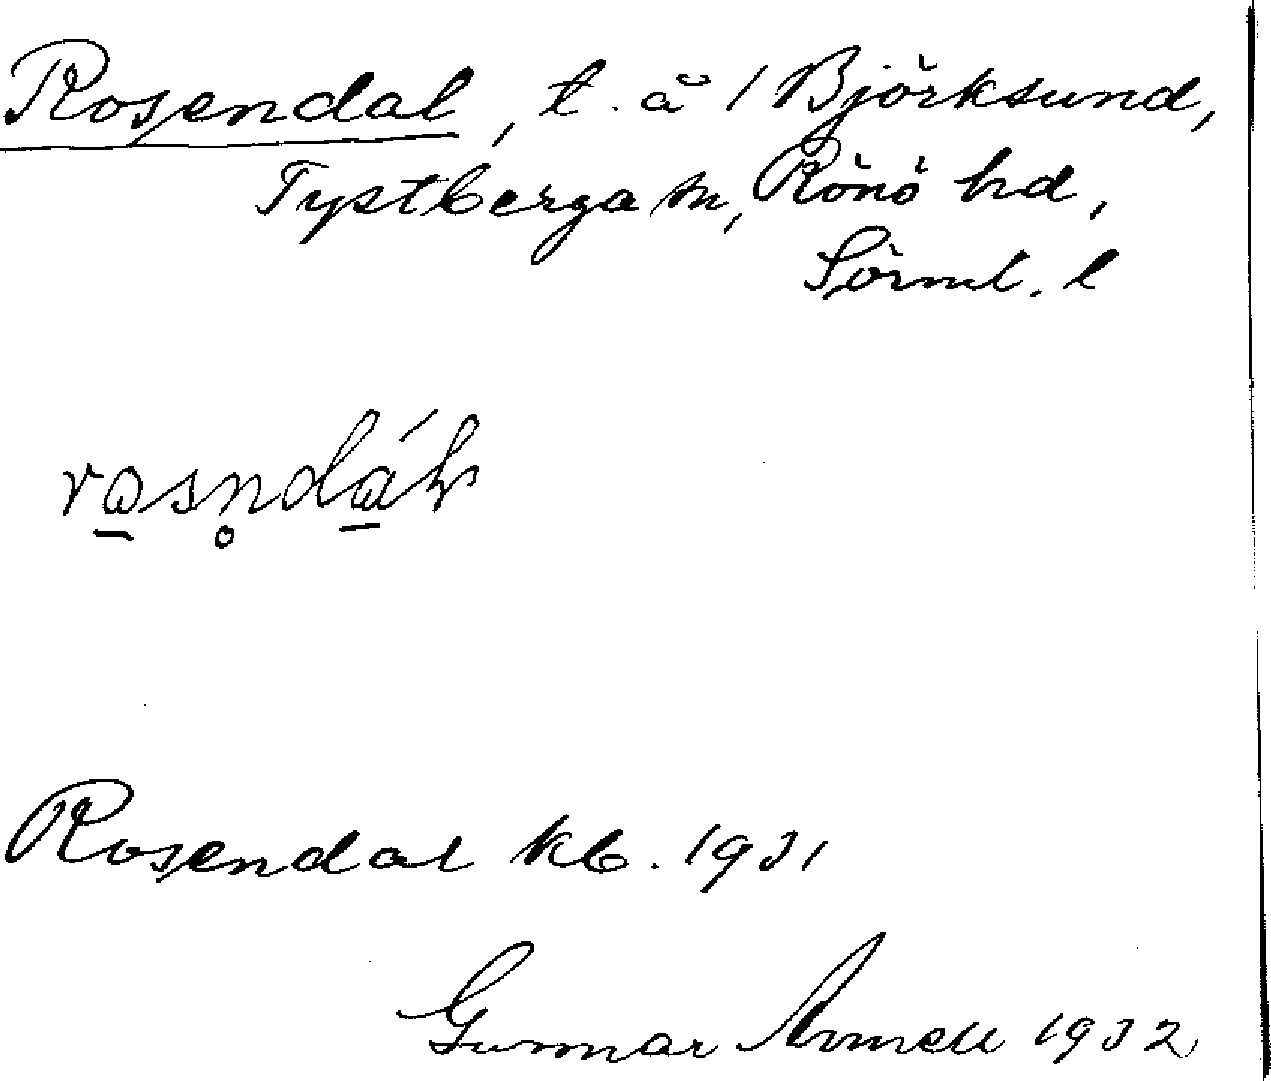 Rosendal, t. å 1 Björksund,
Tystberga sn, Rönö hd,
Sörml. l
Rosendal kb. 1931
Gunnar Annell 1932